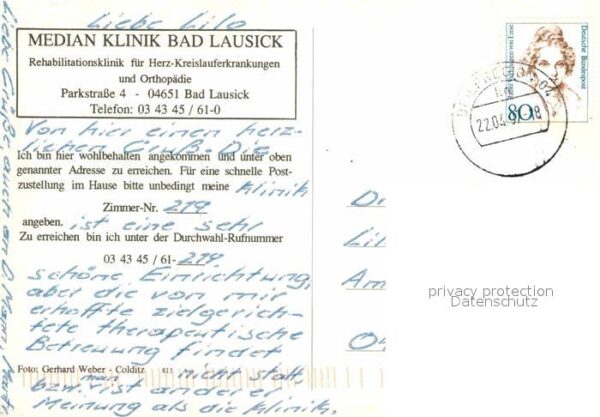 Liebe Lilo
MEDIAN KLINIK BAD LAUSICK
Rehabilitationsklinik für Herz-Kreislauferkrankungen
und Orthopädie
Parkstraße 4 - 04651 Bad Lausick
Telefon: 03 43 45 / 61-0
Von hier einen herz-
lichen Gruß. Die
Ich bin hier wohlbehalten angekommen und unter oben
genannter Adresse zu erreichen. Für eine schnelle Post-
zustellung im Hause bitte unbedingt meine Klinik
Zimmer-Nr. 219
angeben. ist eine sehr
Zu erreichen bin ich unter der Durchwahl-Rufnummer
03 43 45 / 61-219
schöne Einrichtung,
aber die von mir
erhoffte zielgerich-
tete therapeutische
Betreuung findet
Foto: Gerhard Weber - Colditz 811 nicht statt
bzw. man ist anderer
Meinung als die Klinik.
Liebe Grüße auch an D. Mann,
Deutsche Bundespost
80
22.04.97-18
04
Li
Am
04
privacy protection
Datenschutz